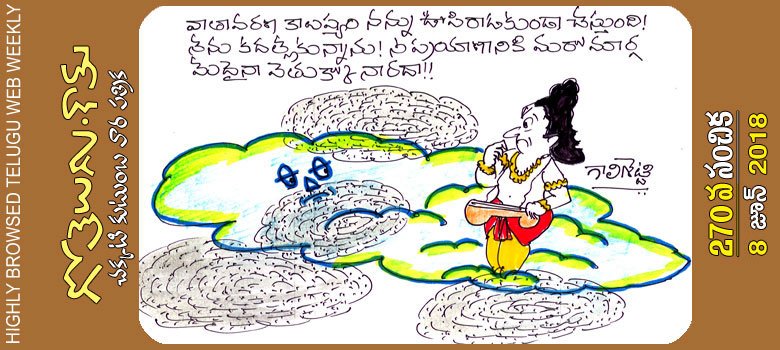 వాతావరణ కాలుష్యం నన్ను ఊపిరాడకుండా చేస్తుంది!
నేను కదల్లేకున్నాను! నీ ప్రయాణానికి మరో మార్గ
మేదైనా వెతుక్కో నారదా!!
గాలిశెట్టి
HIGHLY BROWSED TELUGU WEB WEEKLY
గోతెలుగు.కామ్
చక్కటి కుటుంబ వార పత్రిక
270వ సంచిక
8 జూన్ 2018